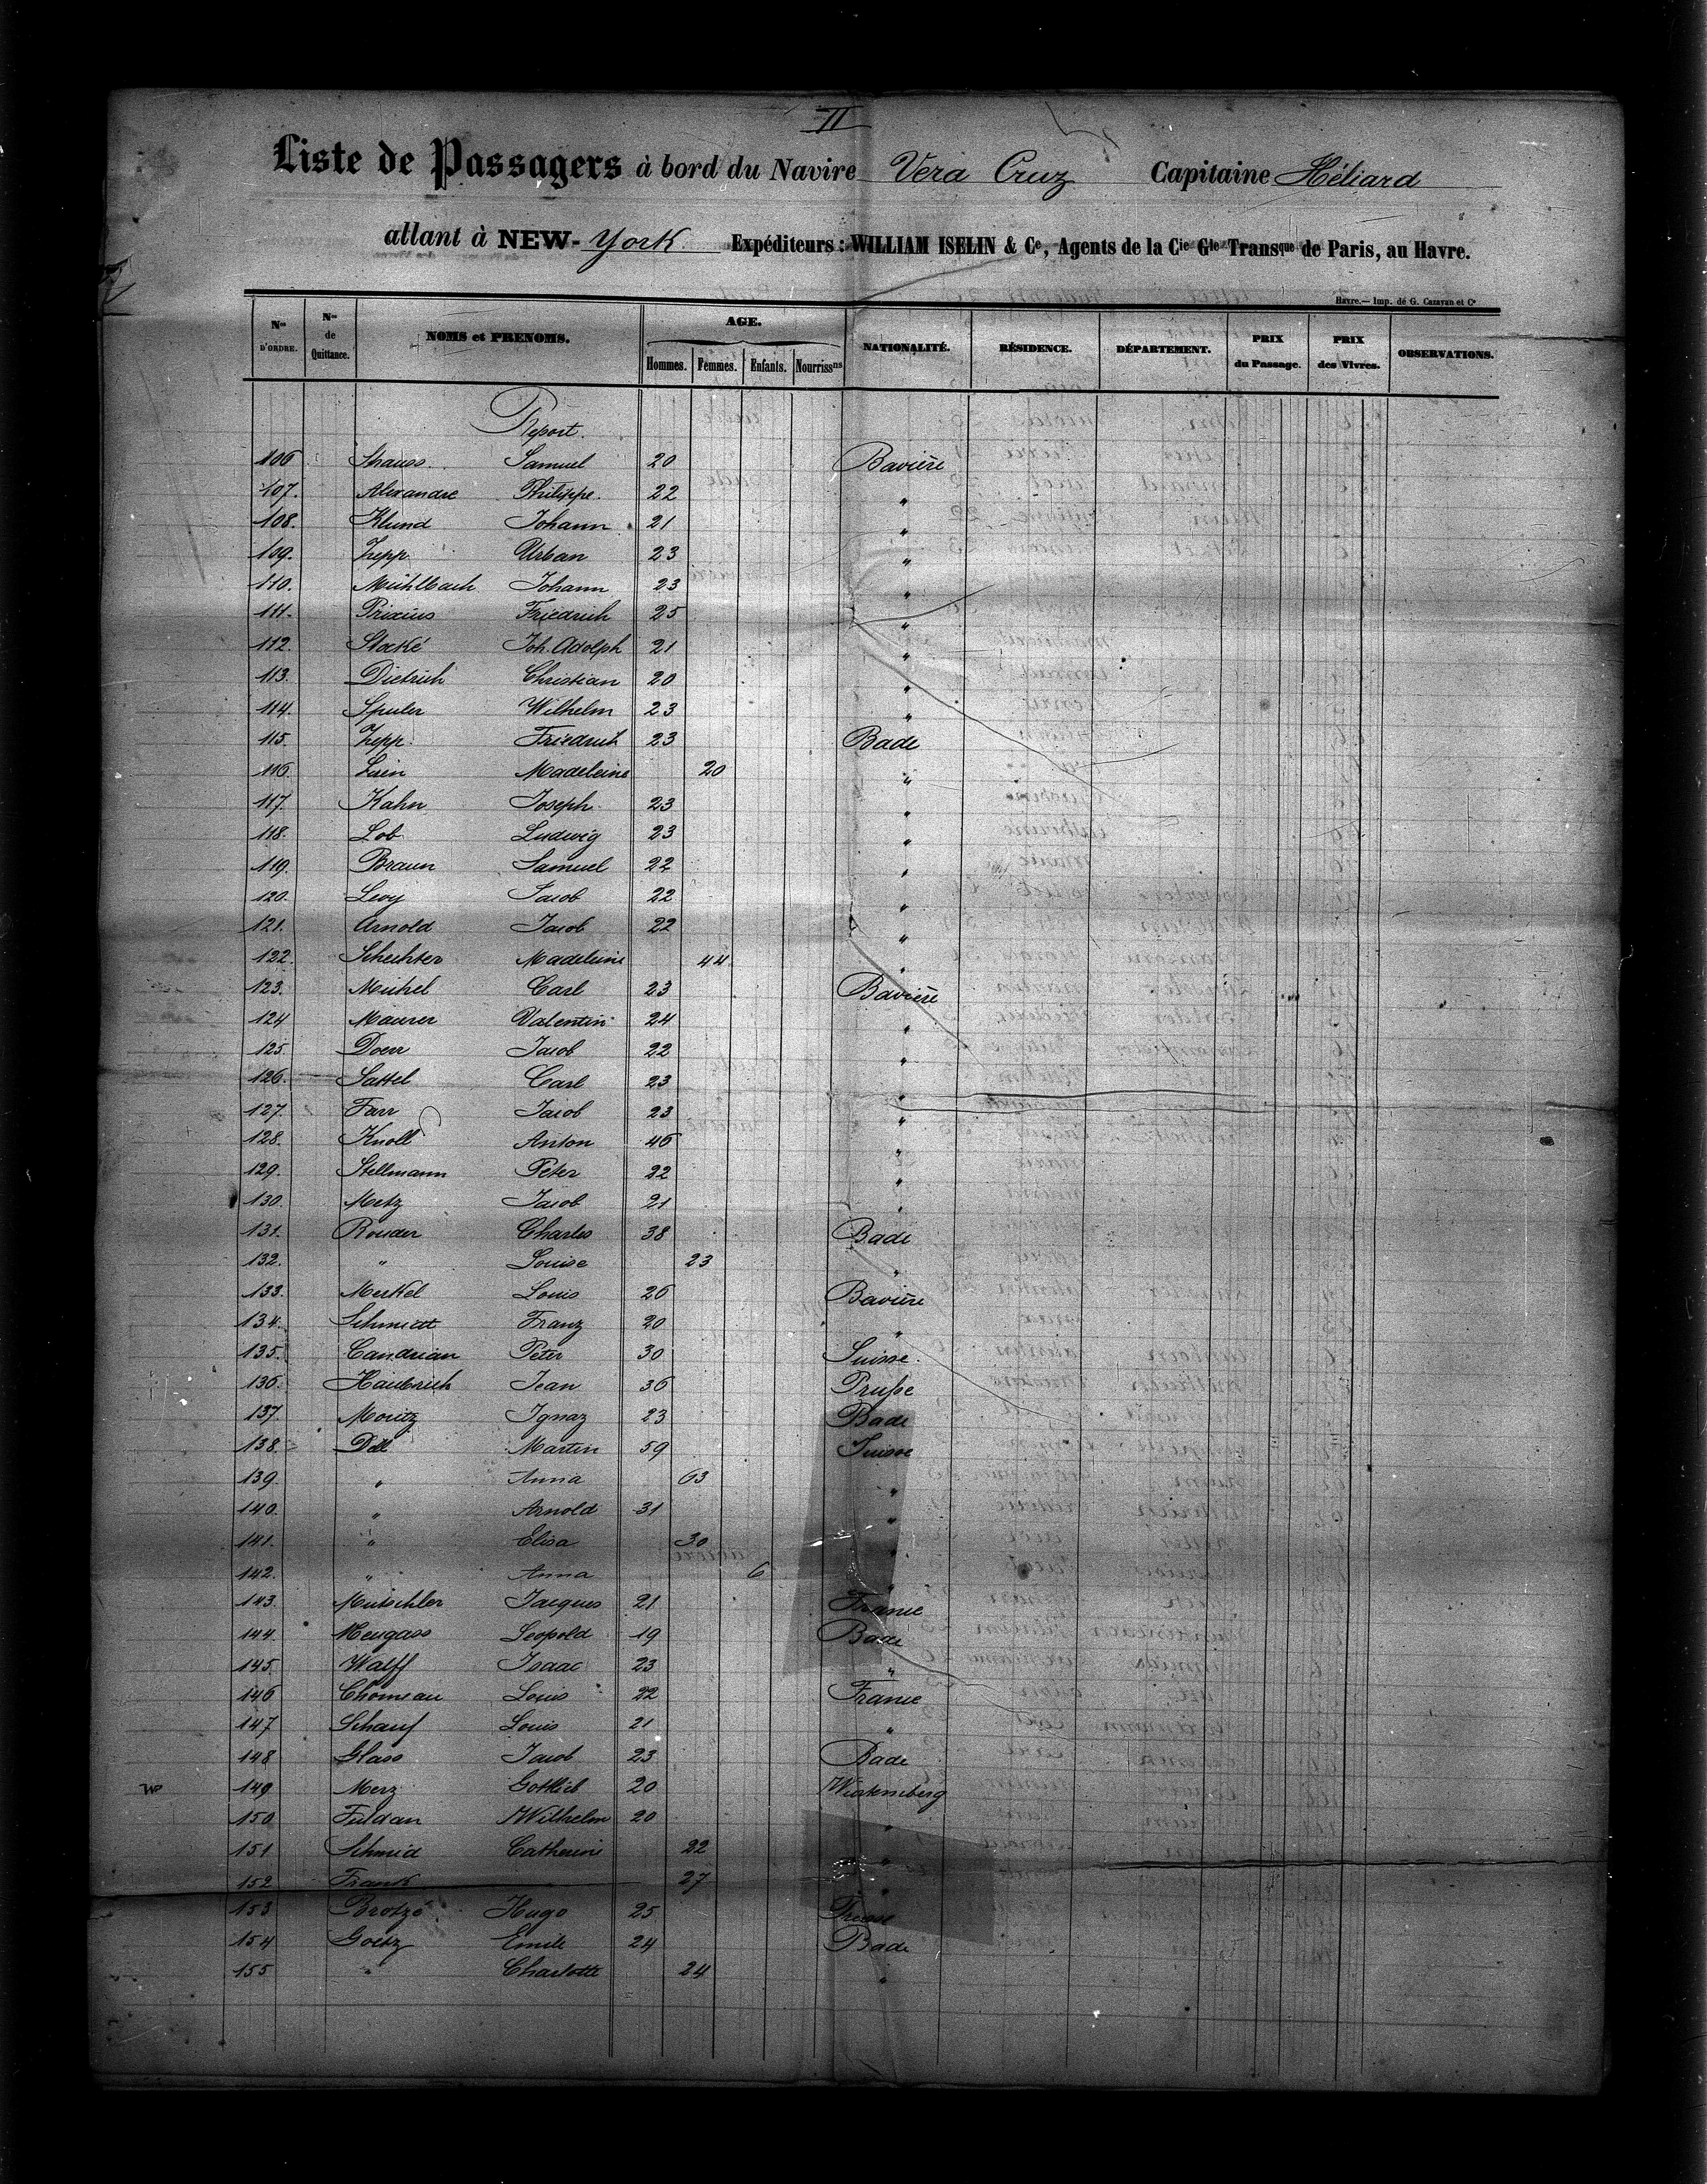 II
Liste de Passagers à bord du Navire Vera Cruz Capitaine Héliard
allant à NEW-York Expéditeurs : WILLIAM ISELIN & Ce, Agents de la Cie Gle Transque de Paris, au Havre.
Havre.— Imp. de G. Cazavan et Ce
Nos D'ORDRE. Nos de Quittance. NOMS et PRENOMS. AGE. Hommes. Femmes. Enfants. Nourrissns NATIONALITÉ. RÉSIDENCE. DÉPARTEMENT. PRIX du Passage. PRIX des Vivres. OBSERVATIONS.
Report.
106 Strauss Samuel 20 Bavière
107. Alexandre Philippe. 22 "
108. Klund Johann 21 "
109. Zepp Urban 23 "
110. Mühlbach Johann 23 "
111. Prixius Friedrich 25 "
112. Stocké Joh. Adolph 21 "
113. Dietrich Christian 20 "
114. Spuler Wilhelm 23 "
115. Zepp. Friedrich 23 Bade
116. Madeleine 20 "
117. Kahn Joseph 23 "
118. Lob Ludwig 23 "
119. Braun Samuel 22 "
120. Levy Jacob 22 "
121. Arnold Jacob 22 "
122. Schechter Madeleine 44 "
123. Michel Carl 23 Bavière
124 Maurer Valentin 24 "
125. Doerr Jacob 22 "
126. Sattel Carl 23 "
127. Farr Jacob 23 "
128. Knoll Anton 46 "
129. Stellmann Peter 22 "
130. Metz Jacob 21 "
131. Rouder Charles 38 Bade
132. " Louise 23 "
133. Merkel Louis 26 Bavière
134. Schmidt Franz 20 "
135. Candrian Peter 30 Suisse.
136. Haubrich Jean 36 Prusse
137. Moritz Ignaz 23 Bade
138. Martin 59 Suisse
139. " Anna 63 "
140. " Arnold 31 "
141. " Elisa 30 "
142. " Anna 6 "
143. Mutschler Jacques 21 France
144. Leopold 19 Bade
145. Walff Isaac 23 "
146 Chomeau Louis 22 France
147 Schauf Louis 21 "
148 Glass Jacob 23 Bade
149 Merz Gottlieb 20 Wurtemberg
150 Fuldan Wilhelm 20 "
151 Schmid Catherine 22 "
152 Frank 27 "
153 Brotzé Hugo 25
154 Goetz Emile 24 Bade
155 " Charlotte 24 "